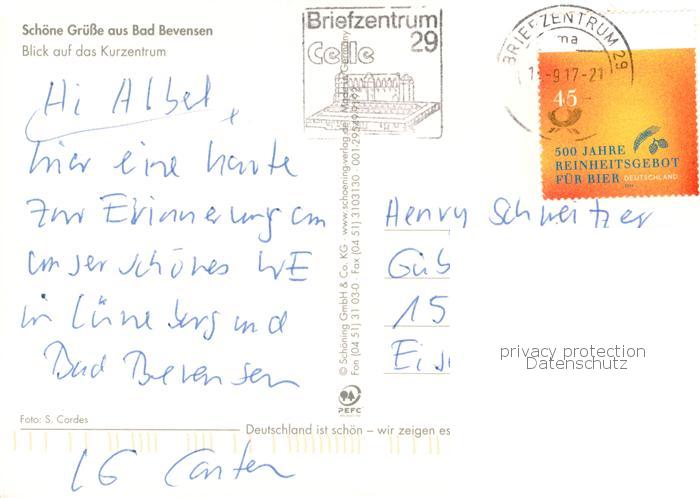 Schöne Grüße aus Bad Bevensen
Blick auf das Kurzentrum
Hi Albel,
hier eine Karte
zur Erinnerung an
unser schönes WE
in Lüneburg und
Bad Bevensen
LG Carsten
Foto: S. Cordes
Deutschland ist schön – wir zeigen es
© Schöning GmbH & Co. KG · www.schoening-verlag.de · Made in Germany
Fon (04 51) 31 03-0 · Fax (04 51) 3103130 · 001-29549-9192
PEFC
Briefzentrum
29
Celle
BRIEFZENTRUM 29
ma
-9.17-21
45
500 JAHRE
REINHEITSGEBOT
FÜR BIER DEUTSCHLAND
Henry Schweitzer
15
privacy protection
Datenschutz